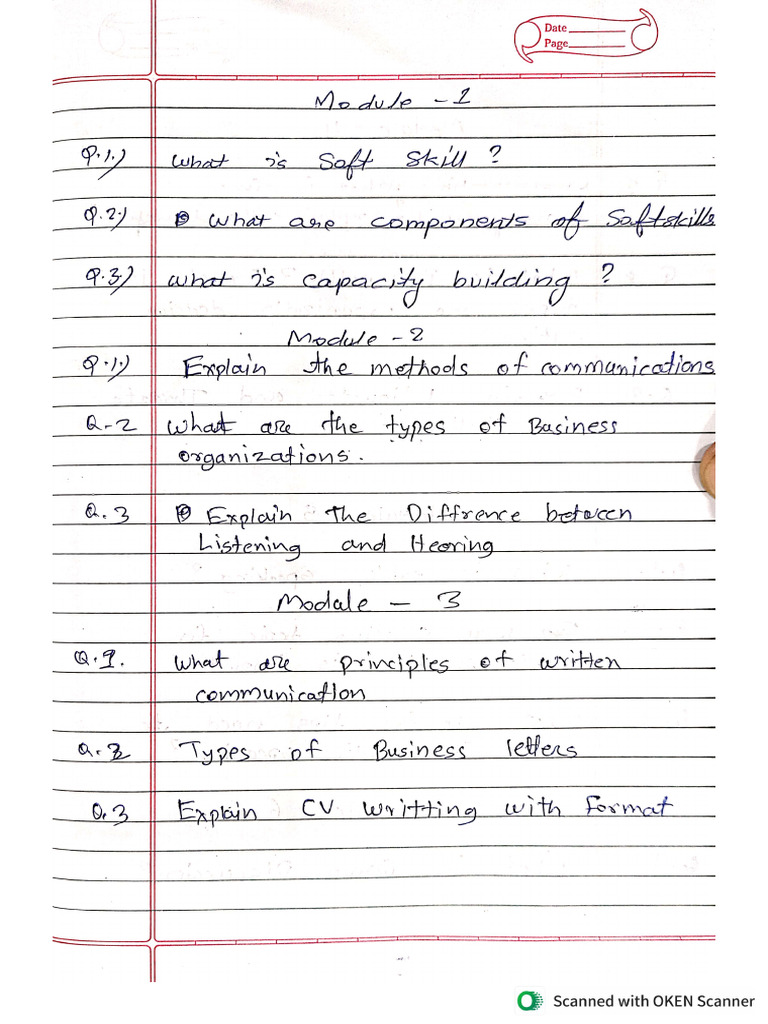 Date
Page
Module - 1
Q.1.) What is Soft Skill ?
Q.2.) What are components of Softskills
Q.3.) What is capacity building ?
Module - 2
Q.1.) Explain the methods of communications
Q-2 What are the types of Business
organizations.
Q.3 Explain the Diffrence between
Listening and Hearing
Modale - 3
Q.1. What are principles of written
communication
Q.2 Types of Business letters
Q.3 Explain CV writting with format
Scanned with OKEN Scanner